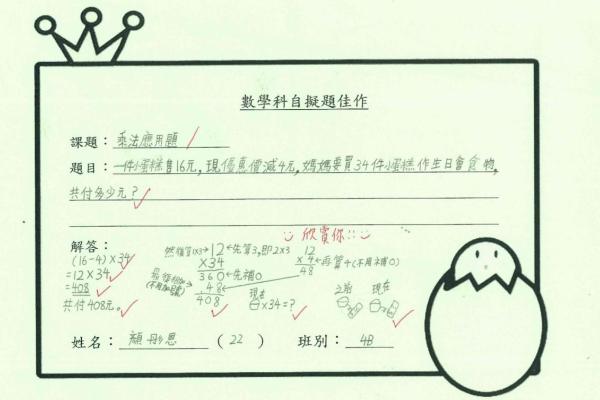 數學科自擬題佳作
課題：乘法應用題
題目：一件小蛋糕售16元，現優惠價減4元，媽媽要買34件小蛋糕作生日會食物，
共付多少元？
欣賞你!!
解答：
(16-4)×34
=12×34
=408
共付408元。
然後算1×3→ 12 ←先算3，即2×3
×34
360 ←先補0
48
408
最後相加
(不用加號)
12
×4 ←再算4(不用補0)
48
現在
×34=?
之前 現在
姓名：顏彤恩 (22) 班別：4B